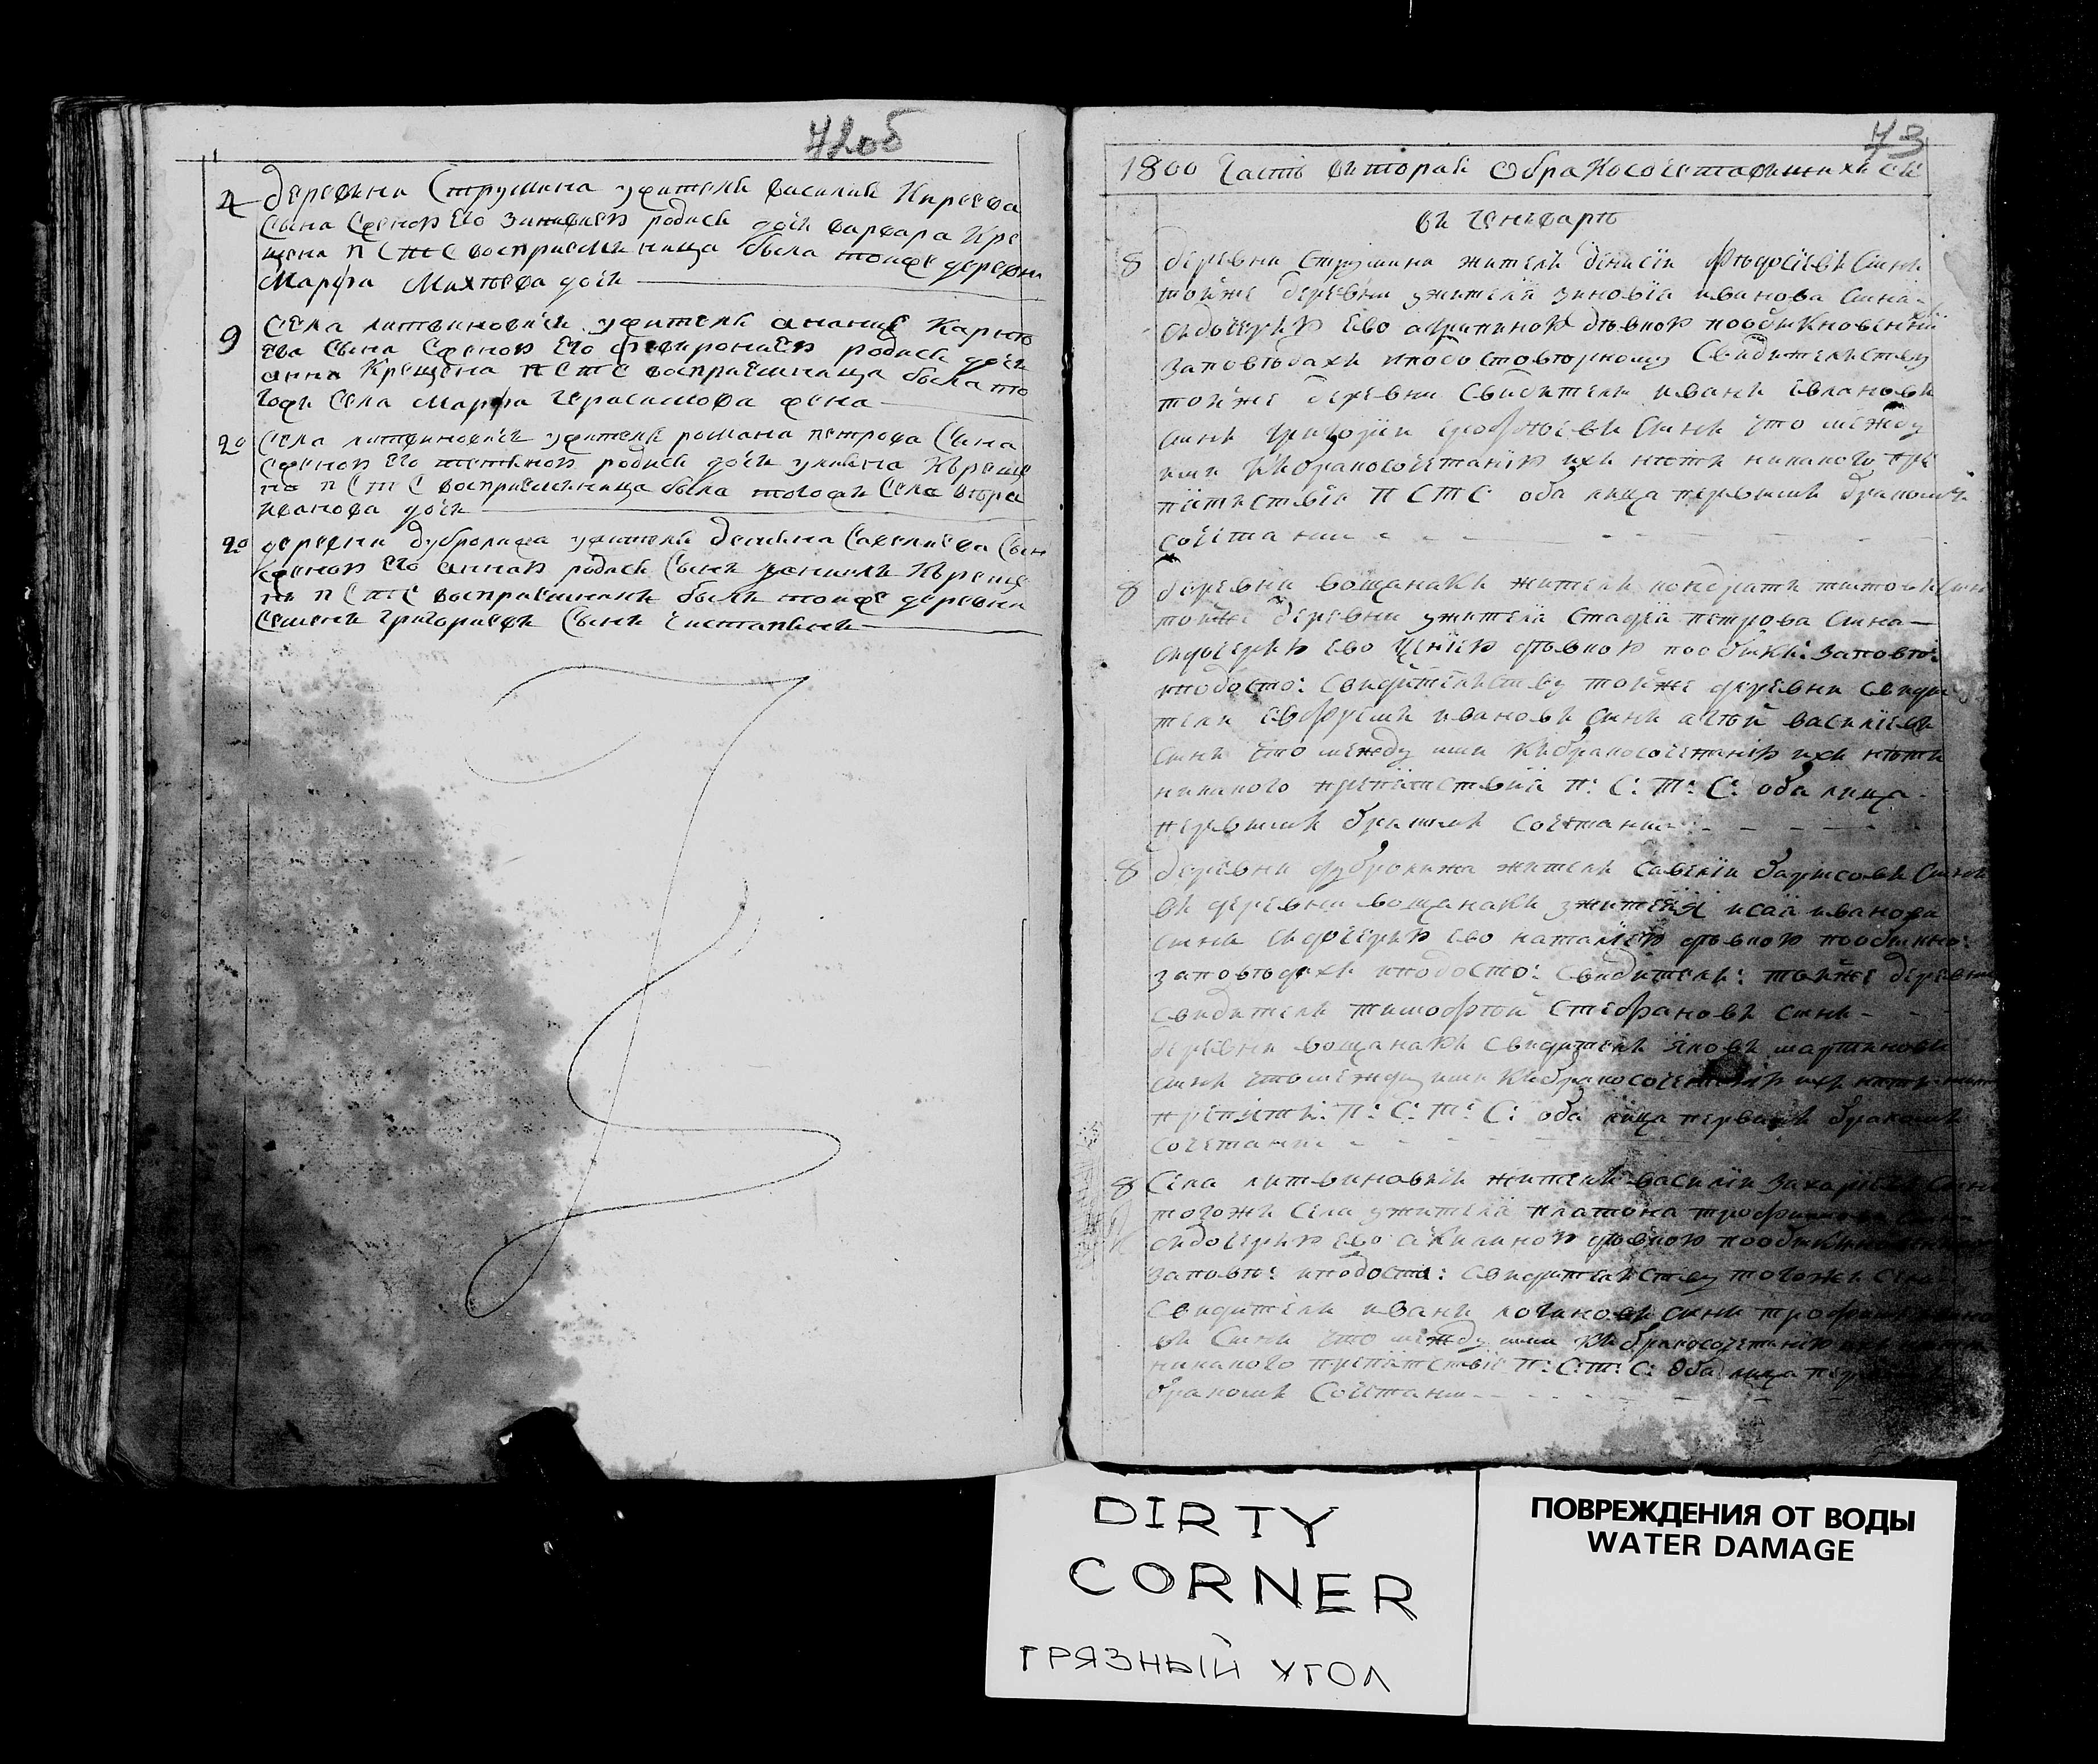 42об
4 деревни Струшина ужителя василия Киреева
сына сженою его зиновиею родися дочь варвара Кре
щена П С Т С восприемница была тоиже деревни
Марфа Михеева дочь
9 Села литвиновичь ужителя анания Карпо
ева сына сженою его февронею родися дочь
анна Крещена П С Т С восприемница была то
гожъ села Марфа герасимова жена
20 Села литвиновичь ужителя романа петрова сына
сженою его родися дочь улияна Креще
на П С Т С восприемница была тогожъ села
иванова дочь
20 деревни дубролижа ужителя демина савелиева сын
сженою его анною родися сынъ даниилъ Креще
нъ П С Т С восприемникъ былъ тоиже деревни
Семенъ григориевъ сынъ
43
1800 Часть вторая о бракосочетавшихся
въ генваре
8 деревни струшина житель денисіи сынъ
тойже деревни ужителя зиновіа иванова сына
здочерью ево агрипиною девкою пообыкновеннй
заповедахъ иподостоверному свидителству
тойже деревни свидители иванъ евлановъ
сынъ григорій сынъ что между
ими къбракосочетанію ихъ нетъ никакого пре
пятствія П С Т С оба лица первымъ бракомъ
сочетани
8 деревни вощанаки житель кондратъ титовъ сынъ
тойже деревни ужителя петрова сына
здочерью ево девкою пообыкн: заповед:
иподосто: свидителству тойже деревни свиди
тели ивановъ сынъ василіевъ
сынъ что между ими къбракосочетанію ихъ нетъ
никакого препятствія П: С: Т: С: оба лица
первымъ бракомъ сочетани
8 деревни дубролижа житель савелій барисовъ сынъ
въ деревни вощанаки ужителя исаіа иванова
сына здочерью ево наталією девкою пообыкно:
заповедахъ иподосто: свидители: тойже деревни
свидители тимофей стефановъ сынъ
деревни вощанаки свидители яковъ мартиновъ
сынъ что между ими къбракосочетанію ихъ нетъ
препятст: П: С: Т: С: оба лица первымъ бракомъ
сочетани
8 Села литвиновичь житель василій захаріевъ сынъ
тогожъ села ужителя платона
здочерью ево акилиною девкою
заповед: иподосто: свидителству тогожъ села
свидители иванъ логиновъ сынъ
въ сынъ что между ими къбракосочетанію
никакого препятствія П: С: Т: С: оба лица
бракомъ сочетани
DIRTY
CORNER
ГРЯЗНЫЙ УГОЛ
ПОВРЕЖДЕНИЯ ОТ ВОДЫ
WATER DAMAGE